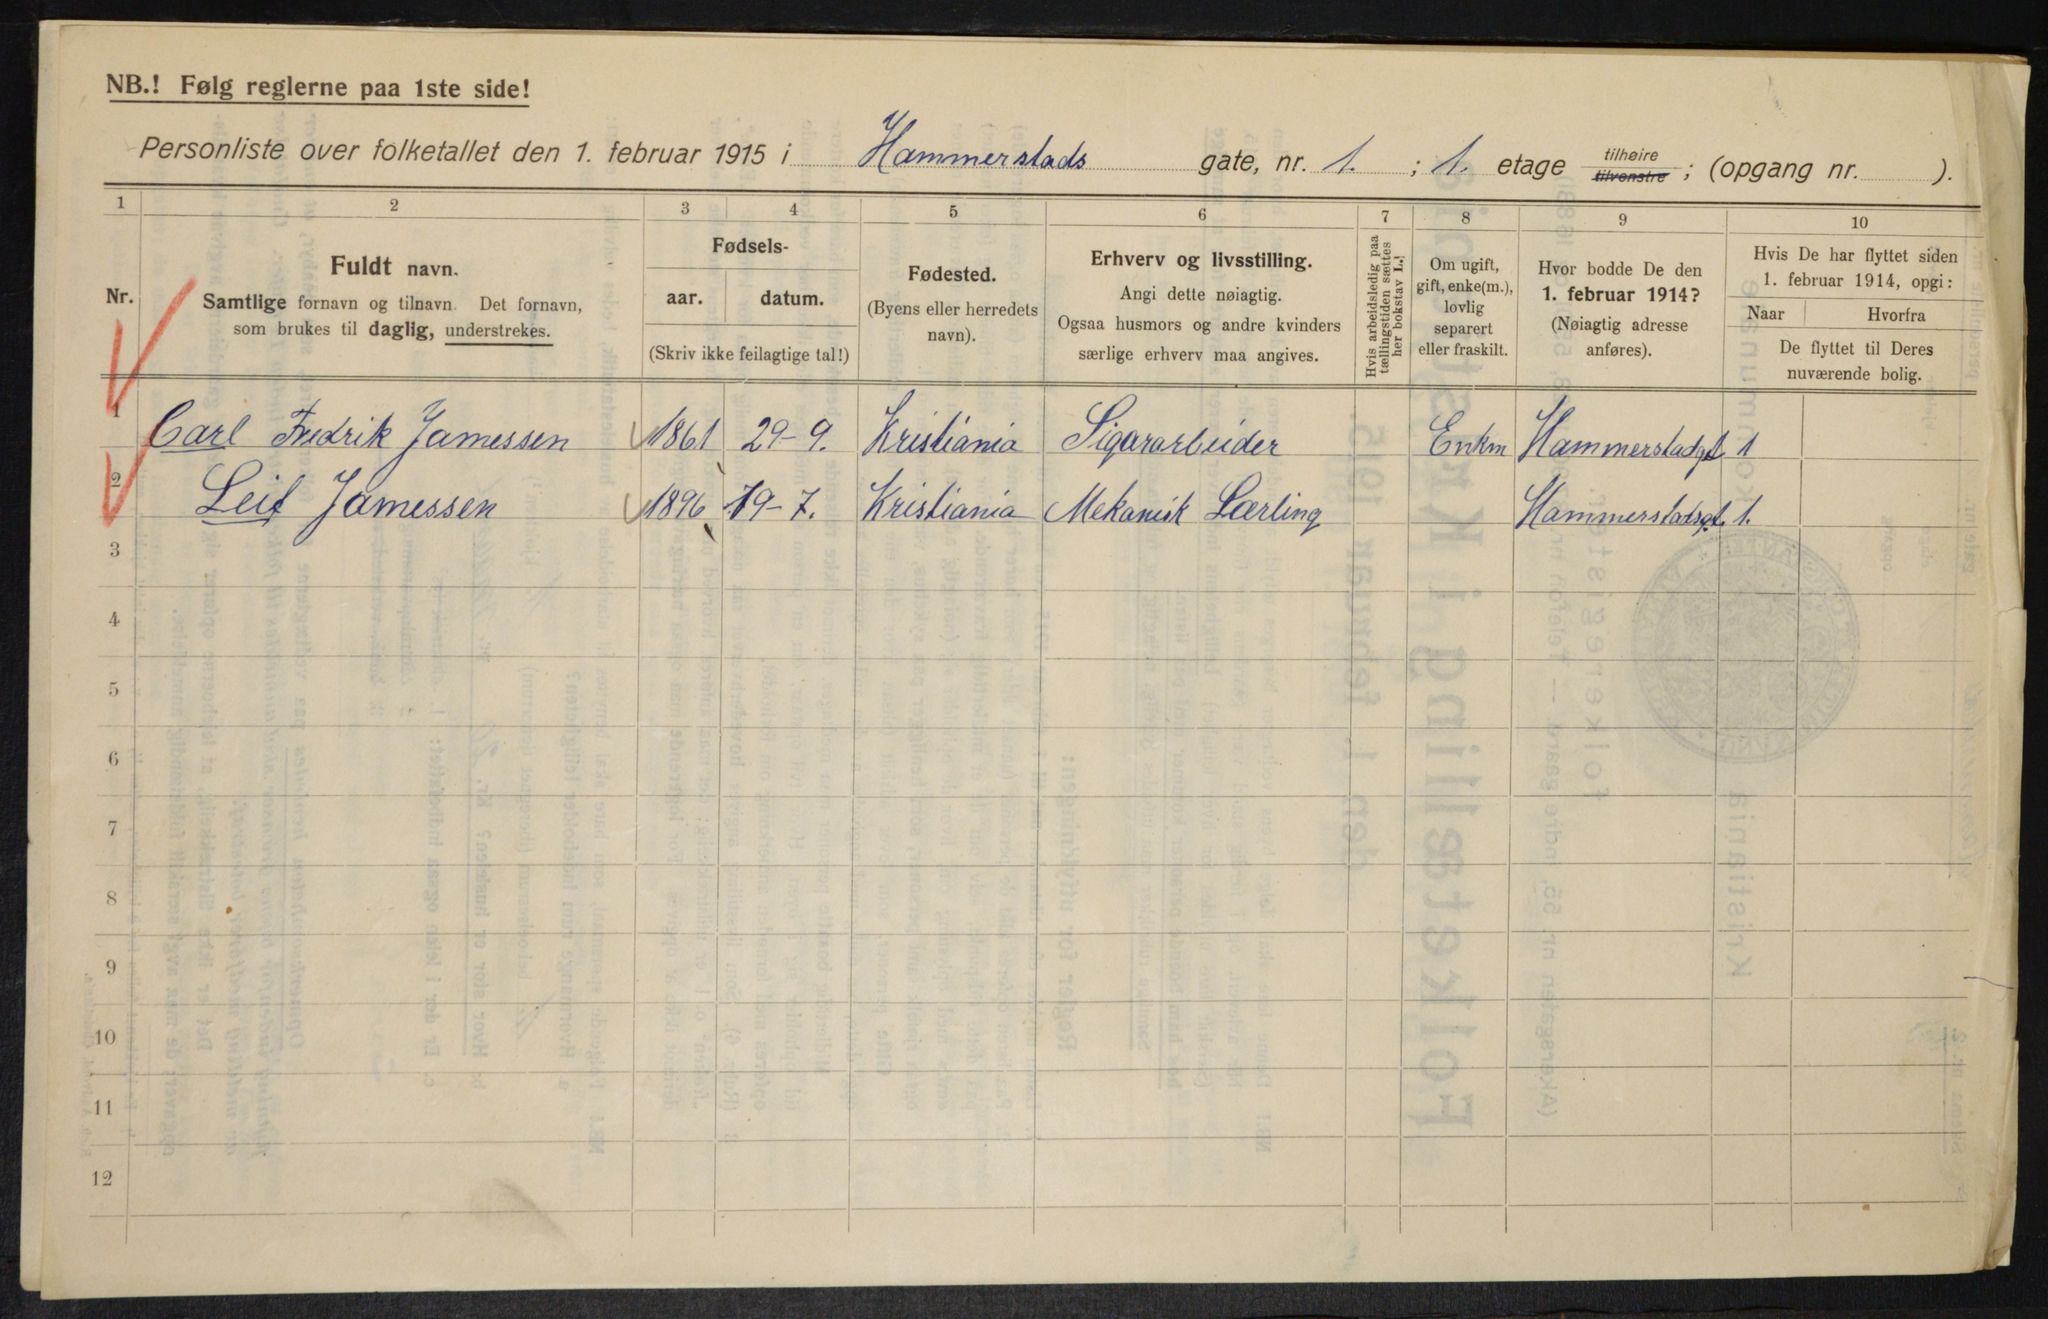 NB.! Følg reglerne paa 1ste side!
Personliste over folketallet den 1. februar 1915 i Hammerstads gate, nr. 1. ; 1. etage tilhøire tilvenstre ; (opgang nr. ).
1 2 3 4 5 6 7 8 9 10
Nr.
Fuldt navn.
Samtlige fornavn og tilnavn. Det fornavn,
som brukes til daglig, understrekes.
Fødsels-
aar. datum.
(Skriv ikke feilagtige tal!)
Fødested.
(Byens eller herredets
navn).
Erhverv og livsstilling.
Angi dette nøiagtig.
Ogsaa husmors og andre kvinders
særlige erhverv maa angives.
Hvis arbeidsledig paa
tællingstiden sættes
her bokstav L.!
Om ugift,
gift, enke(m.),
lovlig
separert
eller fraskilt.
Hvor bodde De den
1. februar 1914?
(Nøiagtig adresse
anføres).
Hvis De har flyttet siden
1. februar 1914, opgi:
Naar Hvorfra
De flyttet til Deres
nuværende bolig.
1 Carl Fredrik Jamessen 1861 29-9. Kristiania Sigararbeider Enkm Hammerstadgt 1
2 Leif Jamessen 1896 19-7. Kristiania Mekanisk Lærling Hammerstadsgt 1.
3
4
5
6
7
8
9
10
11
12